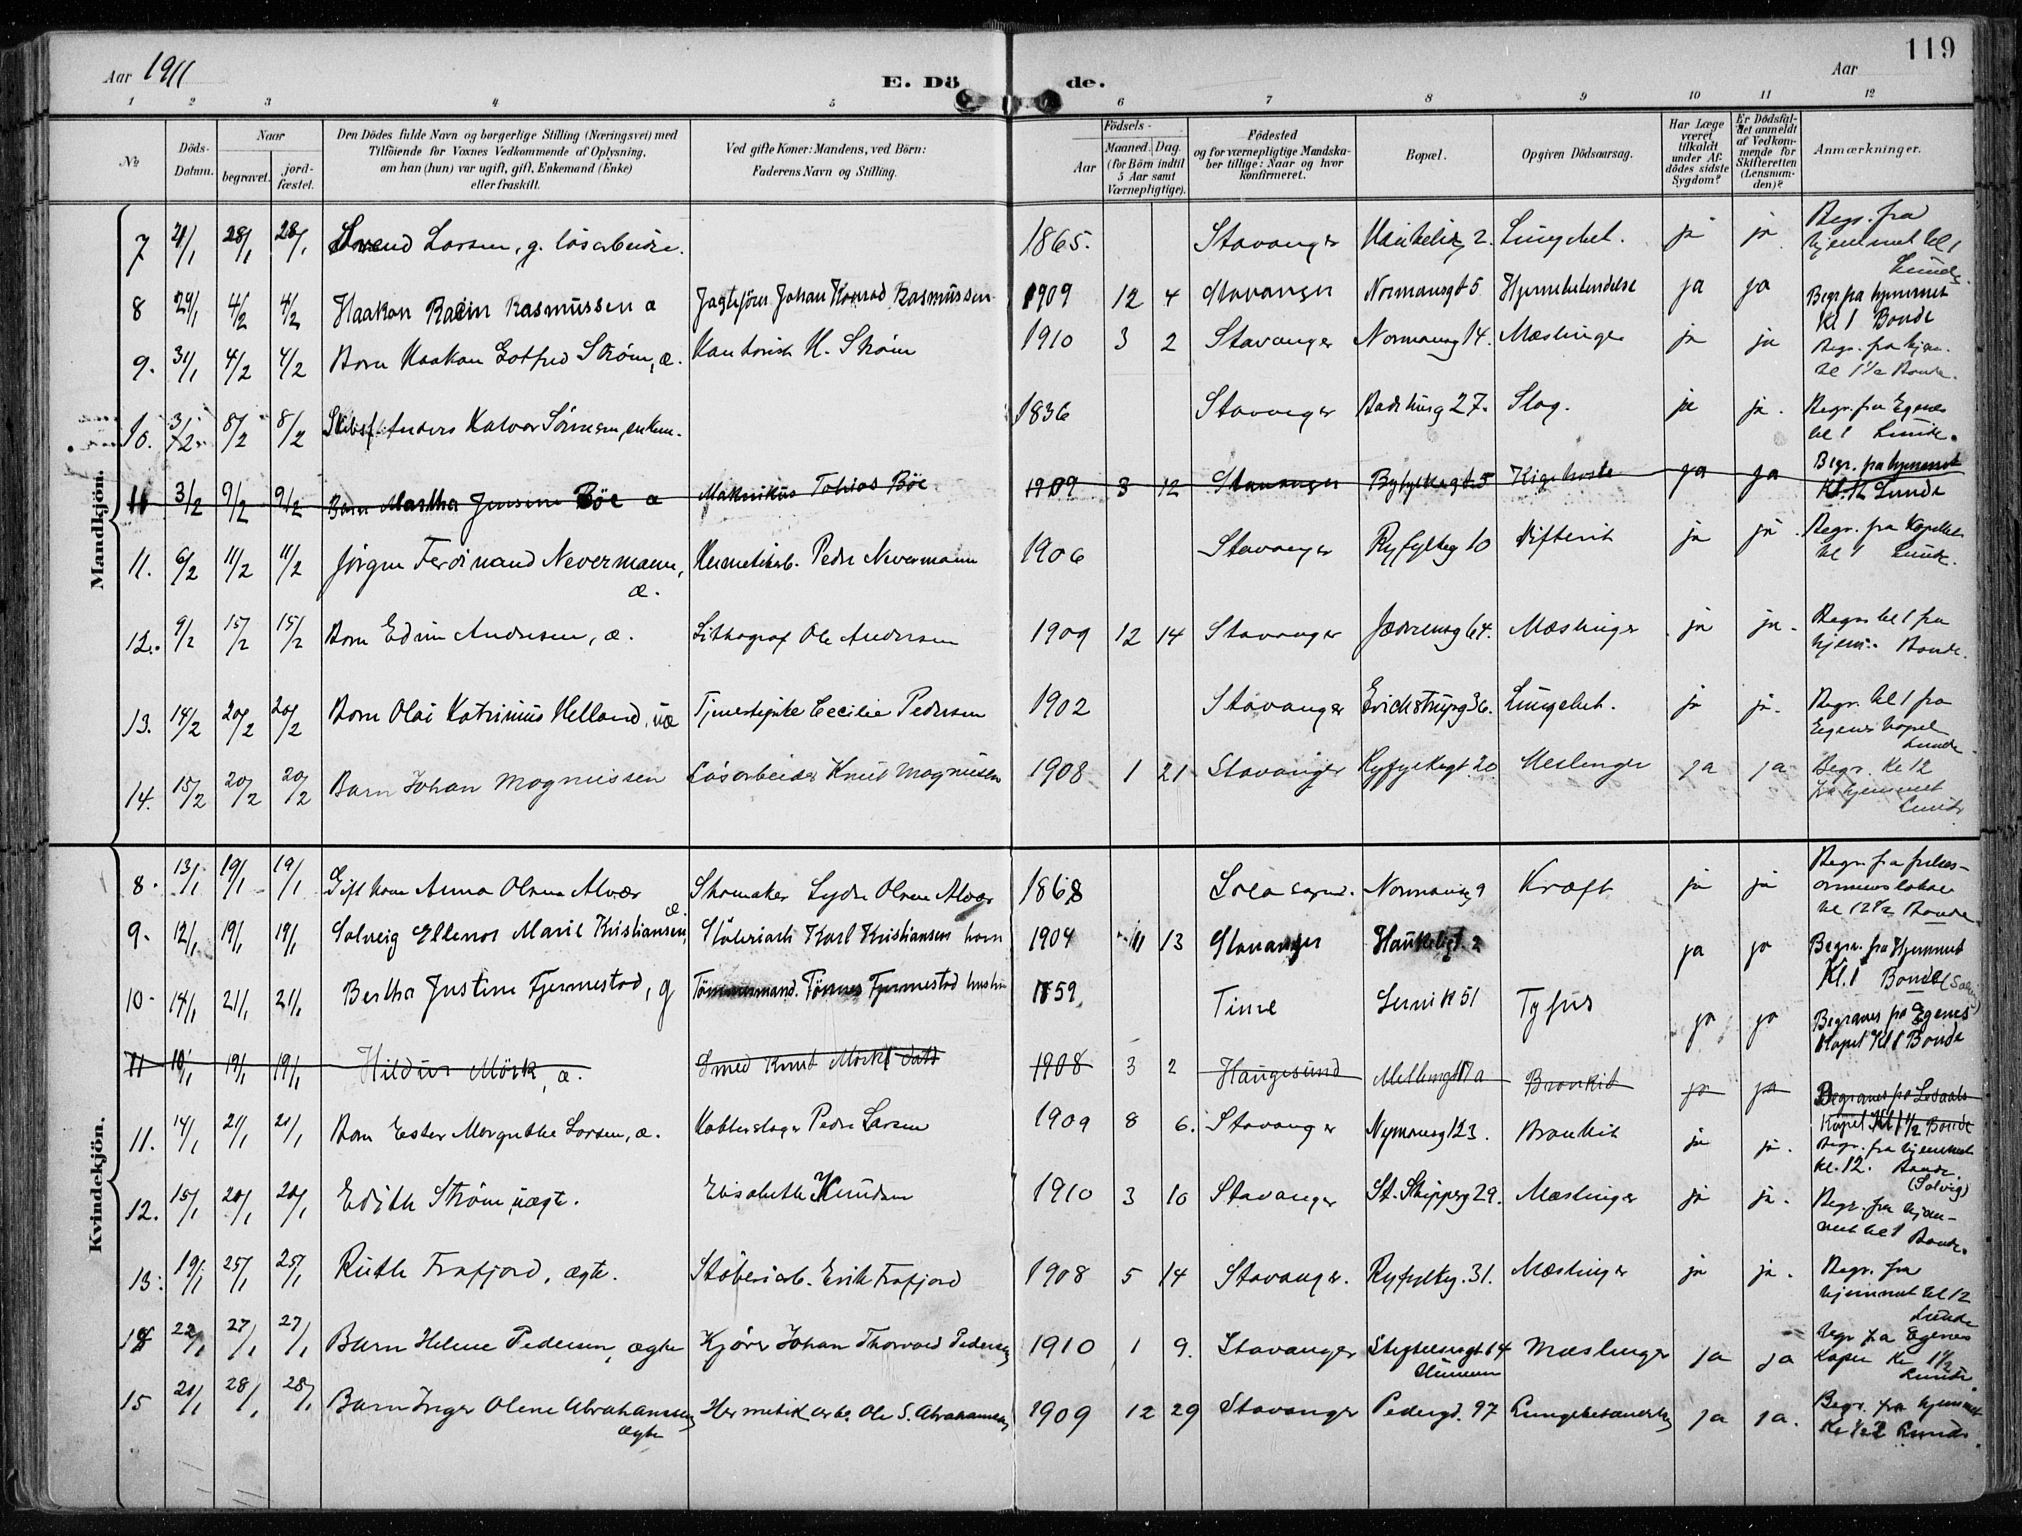 119
Aar 1911
E. Dö de.
Aar
1 2 3 4 5 6 7 8 9 10 11 12
No
Döds-Datum.
Naar
begravet.
jord-fæstet.
Den Dödes fulde Navn og borgerlige Stilling (Næringsvei) med
Tilföiende for Voxnes Vedkommende af Oplysning,
om han (hun) var ugift, gift, Enkemand (Enke)
eller fraskilt.
Ved gifte Koner: Mandens, ved Börn:
Faderens Navn og Stilling.
Födsels-
Aar
Maaned. Dag.
(for Börn indtil
5 Aar samt
Værnepligtige).
Födested
og for værnepligtige Mandska-
ber tillige: Naar og hvor
konfirmeret.
Bopæl.
Opgiven Dödsaarsag.
Har Læge
været
tilkaldt
under Af-
dödes sidste
Sygdom?
Er Dödsfal-
det anmeldt
af Vedkom-
mende for
Skifteretten
(Lensman-
den)?
Anmærkninger.
Mandkjön.
7 21/1 28/1 28/1 Svend Larsen, g. løsarbeider. 1865. Stavanger 2. Lungebet. ja ja Begr. fra hjemmet kl 1 Lunde
8 29/1 4/2 4/2 Haakon Rasmussen æ Johan Konrad Rasmussen 1909 12 4 Stavanger Normansgt 5 Hjernebetendelse ja ja Begr fra hjemmet Kl 1 Bonde
9. 31/1 4/2 4/2 Barn Haakon Gotfred Strøm, æ. Kontorist H. Strøm 1910 3 2 Stavanger Normansg 14. Mæslinger ja ja Begr. fra hjem. kl 1 1/2 Bonde.
10. 3/2 8/2 8/2 Anders Halvor Sörensen, enkem. 1836 Stavanger 27. Slag. ja ja. Begr. fra Egenes kl 1 Lunde.
11 3/2 9/2 9/2 Barn Martha Jensine Böe æ Tobias Böe 1909 3 12 Stavanger Ryfylkegt 5 Kighoste ja ja Begr. fra hjemmet Kl. 12 Lunde
11. 6/2 11/2 11/2 Jörgen Ferdinand Nevermann, æ. Hermetikarb. Peder Nevermann 1906 Stavanger Ryfylkeg 10 Difterit ja ja Begr. fra Kapellet kl 1 Lunde.
12. 9/2 15/2 15/2 Barn Edvin Andersen, æ. Lithograf Ole Andersen 1909 12 14 Stavanger Jædrensg 64. Mæslinger ja ja. Begr. kl 1 fra hjem. Bonde.
13. 14/2 20/2 20/2 Barn Olai Katrinius Helland, uæ Tjenestepike Cecilie Pedersen 1902 Stavanger 36. Lungebet. ja ja. Begr. kl 1 fra Egenes kapel Lunde
14. 15/2 20/2 20/2 Barn Johan Magnussen Løsarbeider Knut Magnussen 1908 1 21 Stavanger Ryfylkegt. 20 Meslinger ja ja Begr. Kl 12 fra hjemmet Lunde
Kvindekjön.
8. 13/1 19/1 19/1 Gift kone Anna Olene Alvær Skomaker Alvær 1868 Sola sogn. Normansg 9 Kræft ja ja Begr. fra frelses-armeens lokale kl 12 1/2 Bonde
9. 12/1 19/1 19/1 Solveig Ellenor Marie Kristiansen, æ Karl Kristiansens barn 1904 11 13 Stavanger Haukeligt. 2 ja ja Begr. fra Hjemmet Kl. 1 Bonde
10. 14/1 21/1 21/1 Bertha Justine Fjermestad, g Tömmermand. Tönnes Fjermestad hustru 1859 Time 51 Tyfus ja ja Begraves fra Egenes Kapel Kl 1 Bonde
11 10/1 19/1 19/1 Hildur Mörk, æ. Smed Knut Mörks datt 1908 3 2 Haugesund Bronkit ja ja Begraves fra Kapel Kl 1 1/2 Bonde
11. 14/1 21/1 21/1 Barn Ester Margrethe Larsen, æ. Kobberslager Peder Larsen 1909 8 6. Stavanger Nymansg 123. Bronkit ja ja. Begr. fra hjemmet kl. 12. Bonde. (Solvig)
12. 15/1 20/1 20/1 Edith Strøm uægte. Elisabeth Knudsen 1910 3 10 Stavanger St. Skipperg 29. Mæslinger ja ja. Begr. fra hjem-met kl 1 Bonde.
13. 19/1 25/1 25/1 Ruth Frafjord, ægte. Støberiarb. Erik Frafjord 1908 5 14 Stavanger. Ryfylkeg. 31. Mæslinger ja ja. Begr. fra hjemmet kl 12 Lunde
14 22/1 27/1 27/1 Barn Helene Pedersen, ægte Kjører Johan Thorvald Pedersen 1910 1 9. Stavanger 14 Mæslinger ja ja Begr fra Egenes Kapel Kl 1 1/2 Lunde.
15 21/1 28/1 28/1 Barn Inger Olene Abrahamsen ægte Hermetikarb. Ole S. Abrahamsen 1909 12 29 Stavanger Pedersgd. 97 Lungebetændelse ja ja. Begr. fra hjemmet Kl 1/2 2 Lunde.